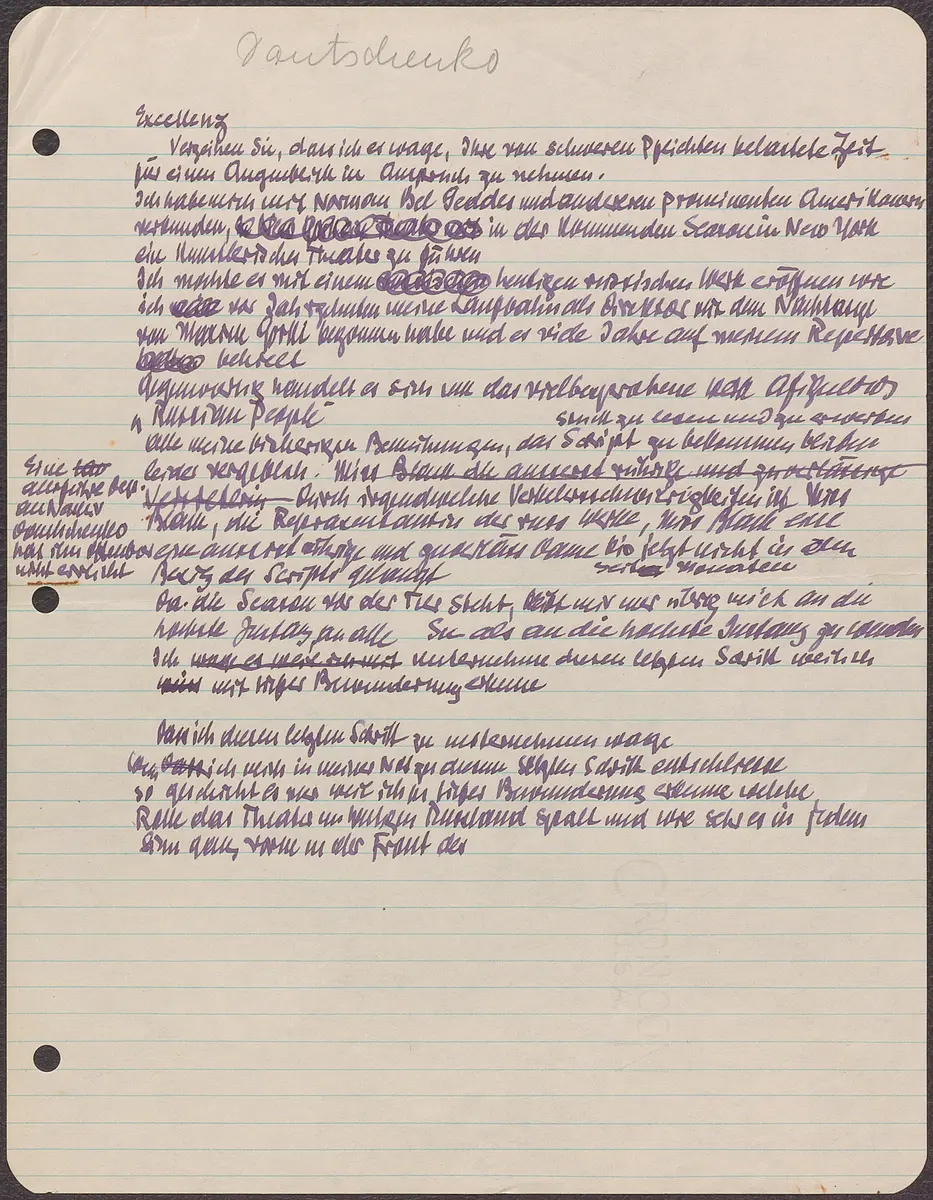 Dantschenko
Excellenz
Verzeihen Sie, dass ich es wage, Ihre von schweren Pflichten belastete Zeit
für einen Augenblick in Anspruch zu nehmen.
Ich habe mich mit Norman Bel Geddes und anderen prominenten Amerikanern
verbunden, in der kommenden Season in New York
ein künstlerisches Theater zu führen
Ich möchte es mit einem heutigen russischen Werk eröffnen wie
ich vor Jahrzehnten meine Laufbahn als Direktor mit dem Nachtasyl
von Maxim Gorki begonnen habe und es viele Jahre auf meinem Repertoire
behielt
Gegenwärtig handelt es sich um das vielbesprochene Werk
"Russian People
Stück zu lesen und zu erwerben
alle meine bisherigen Bemühungen, das Script zu bekommen blieben
leider vergeblich. Miss Blank die äusserst rührige und zuverlässige
Vertreterin Durch irgendwelche Verkehrsschwierigkeiten ist Miss
Blank, die Repräsentantin der russ Werke, Miss Blank eine
eine äusserst rührige und Dame bis jetzt nicht in den
seit Monaten
Besitz des Scripts gelangt
Eine
an
Dantschenko
hat ihn offenbar
nicht erreicht
Da die Season vor der Tür steht, bleibt mir nur übrig mich an die
höchste Instanz, an alle Sie als an die höchste Instanz zu wenden
Ich wage es weil ich mit unternehme diesen letzten Schritt weil ich
mit tiefer Bewunderung erkenne
Dass ich diesen letzten Schritt zu unternehmen wage
Wenn Dass ich mich in meiner Not zu diesem letzten Schritt entschliesse
so geschieht es nur weil ich in tiefer Bewunderung erkenne welche
Rolle das Theater im heutigen Russland spielt und wie sehr es in jedem
Sinn ganz vorne in der Front der